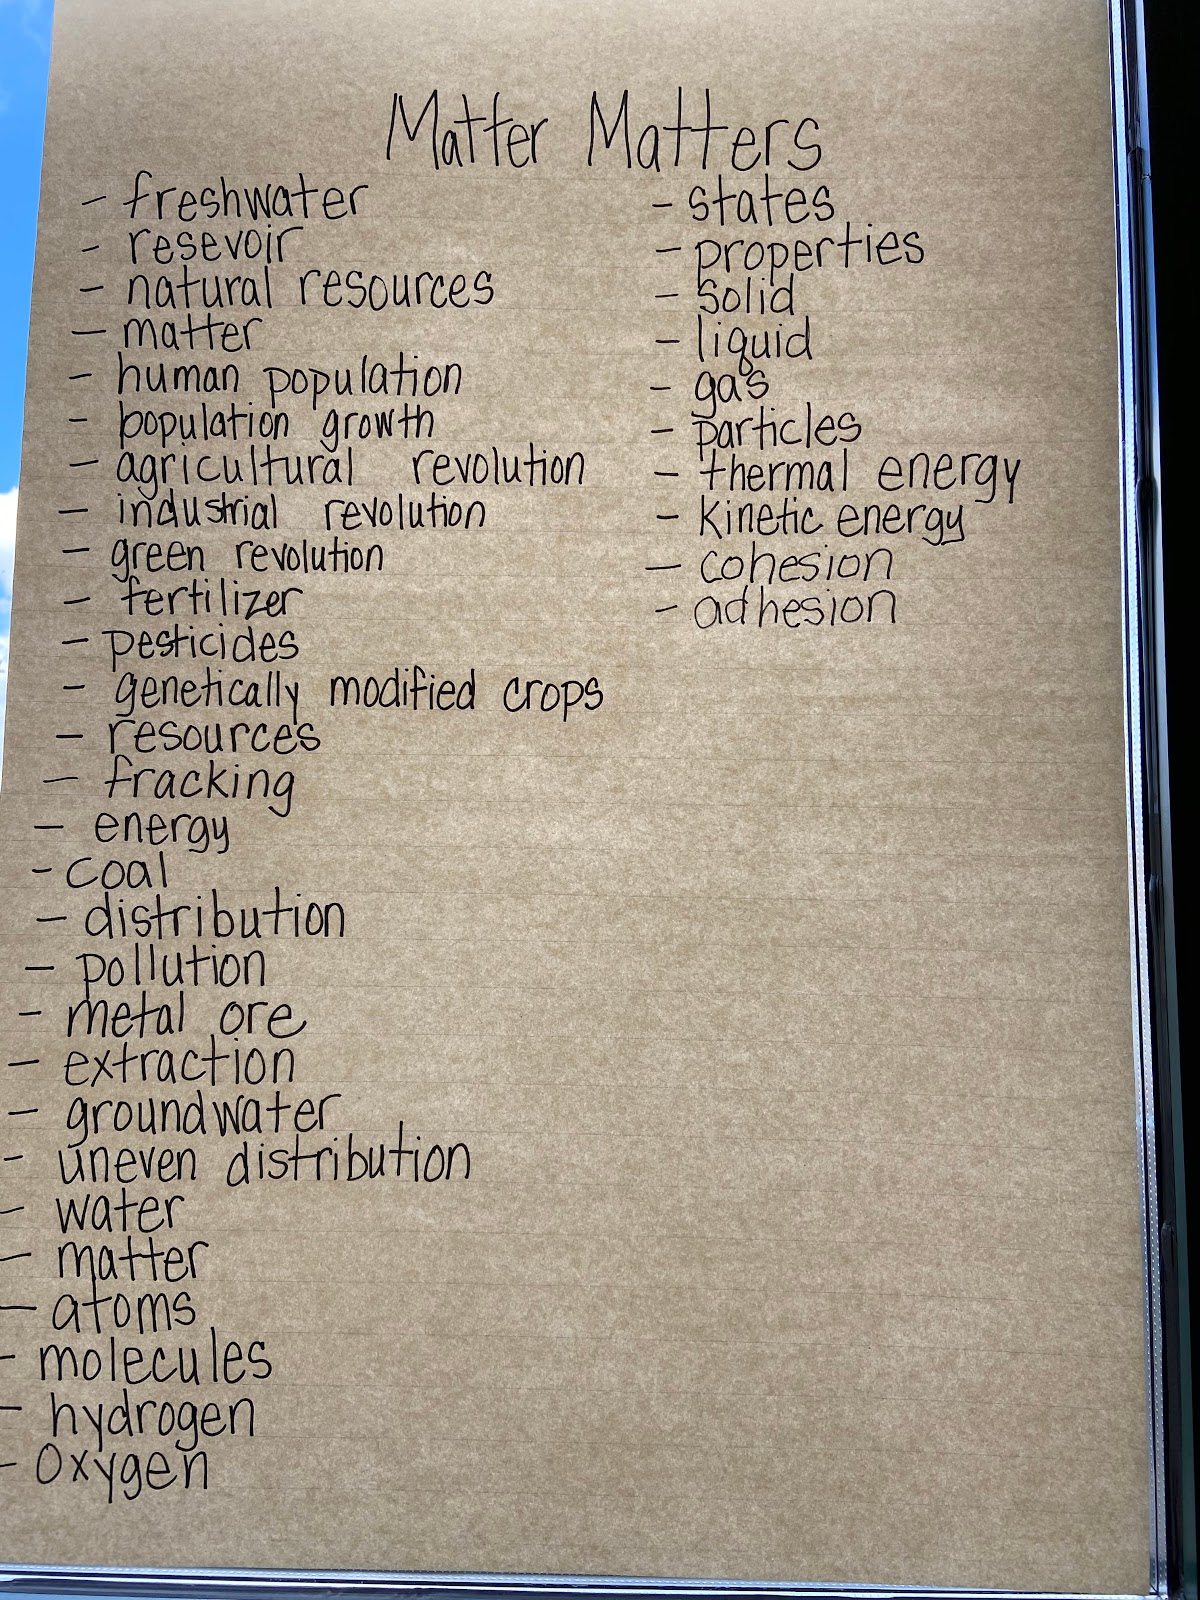 Matter Matters
- freshwater
- resevoir
- natural resources
- matter
- human population
- population growth
- agricultural revolution
- industrial revolution
- green revolution
- fertilizer
- pesticides
- genetically modified crops
- resources
- fracking
- energy
- coal
- distribution
- pollution
- metal ore
- extraction
- groundwater
- uneven distribution
- water
- matter
- atoms
- molecules
- hydrogen
- oxygen
- states
- properties
- solid
- liquid
- gas
- particles
- thermal energy
- kinetic energy
- cohesion
- adhesion